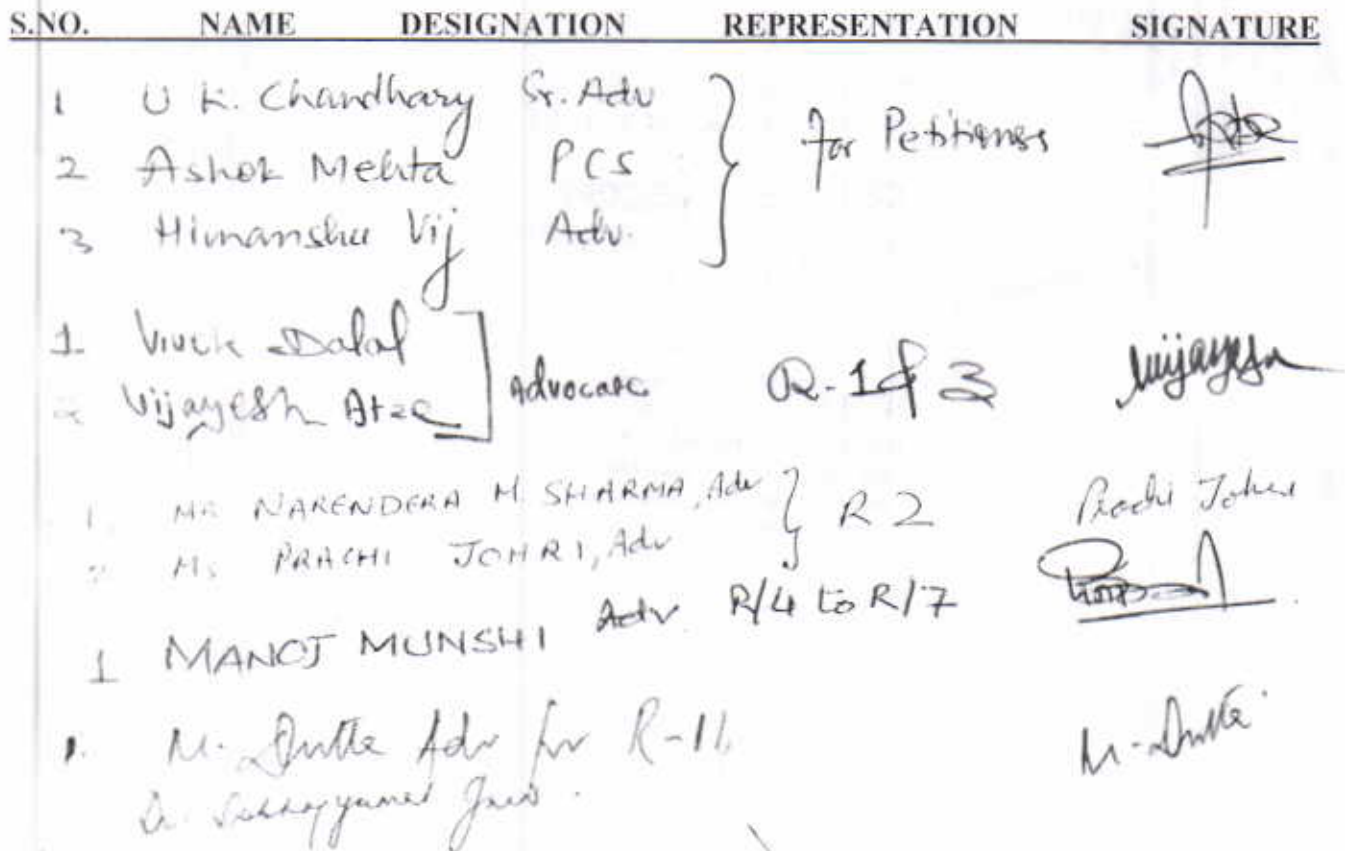 S.NO. NAME DESIGNATION REPRESENTATION SIGNATURE
1 U K. Chandhary Sr. Adv
2 Ashok Mehta PCS for Petitioners
3 Himanshu Vij Adv.
1 Vivek Dalal
2 Vijayesh Atre Advocate R-1 & 3 Vijayesh
1. MR NARENDERA M. SHARMA, Adv R 2 Prachi Johri
2. Ms PRACHI JOHRI, Adv
1 MANOJ MUNSHI Adv. R/4 to R/7
1. M. Dutta Adv for R-11 M. Dutta
Dr.